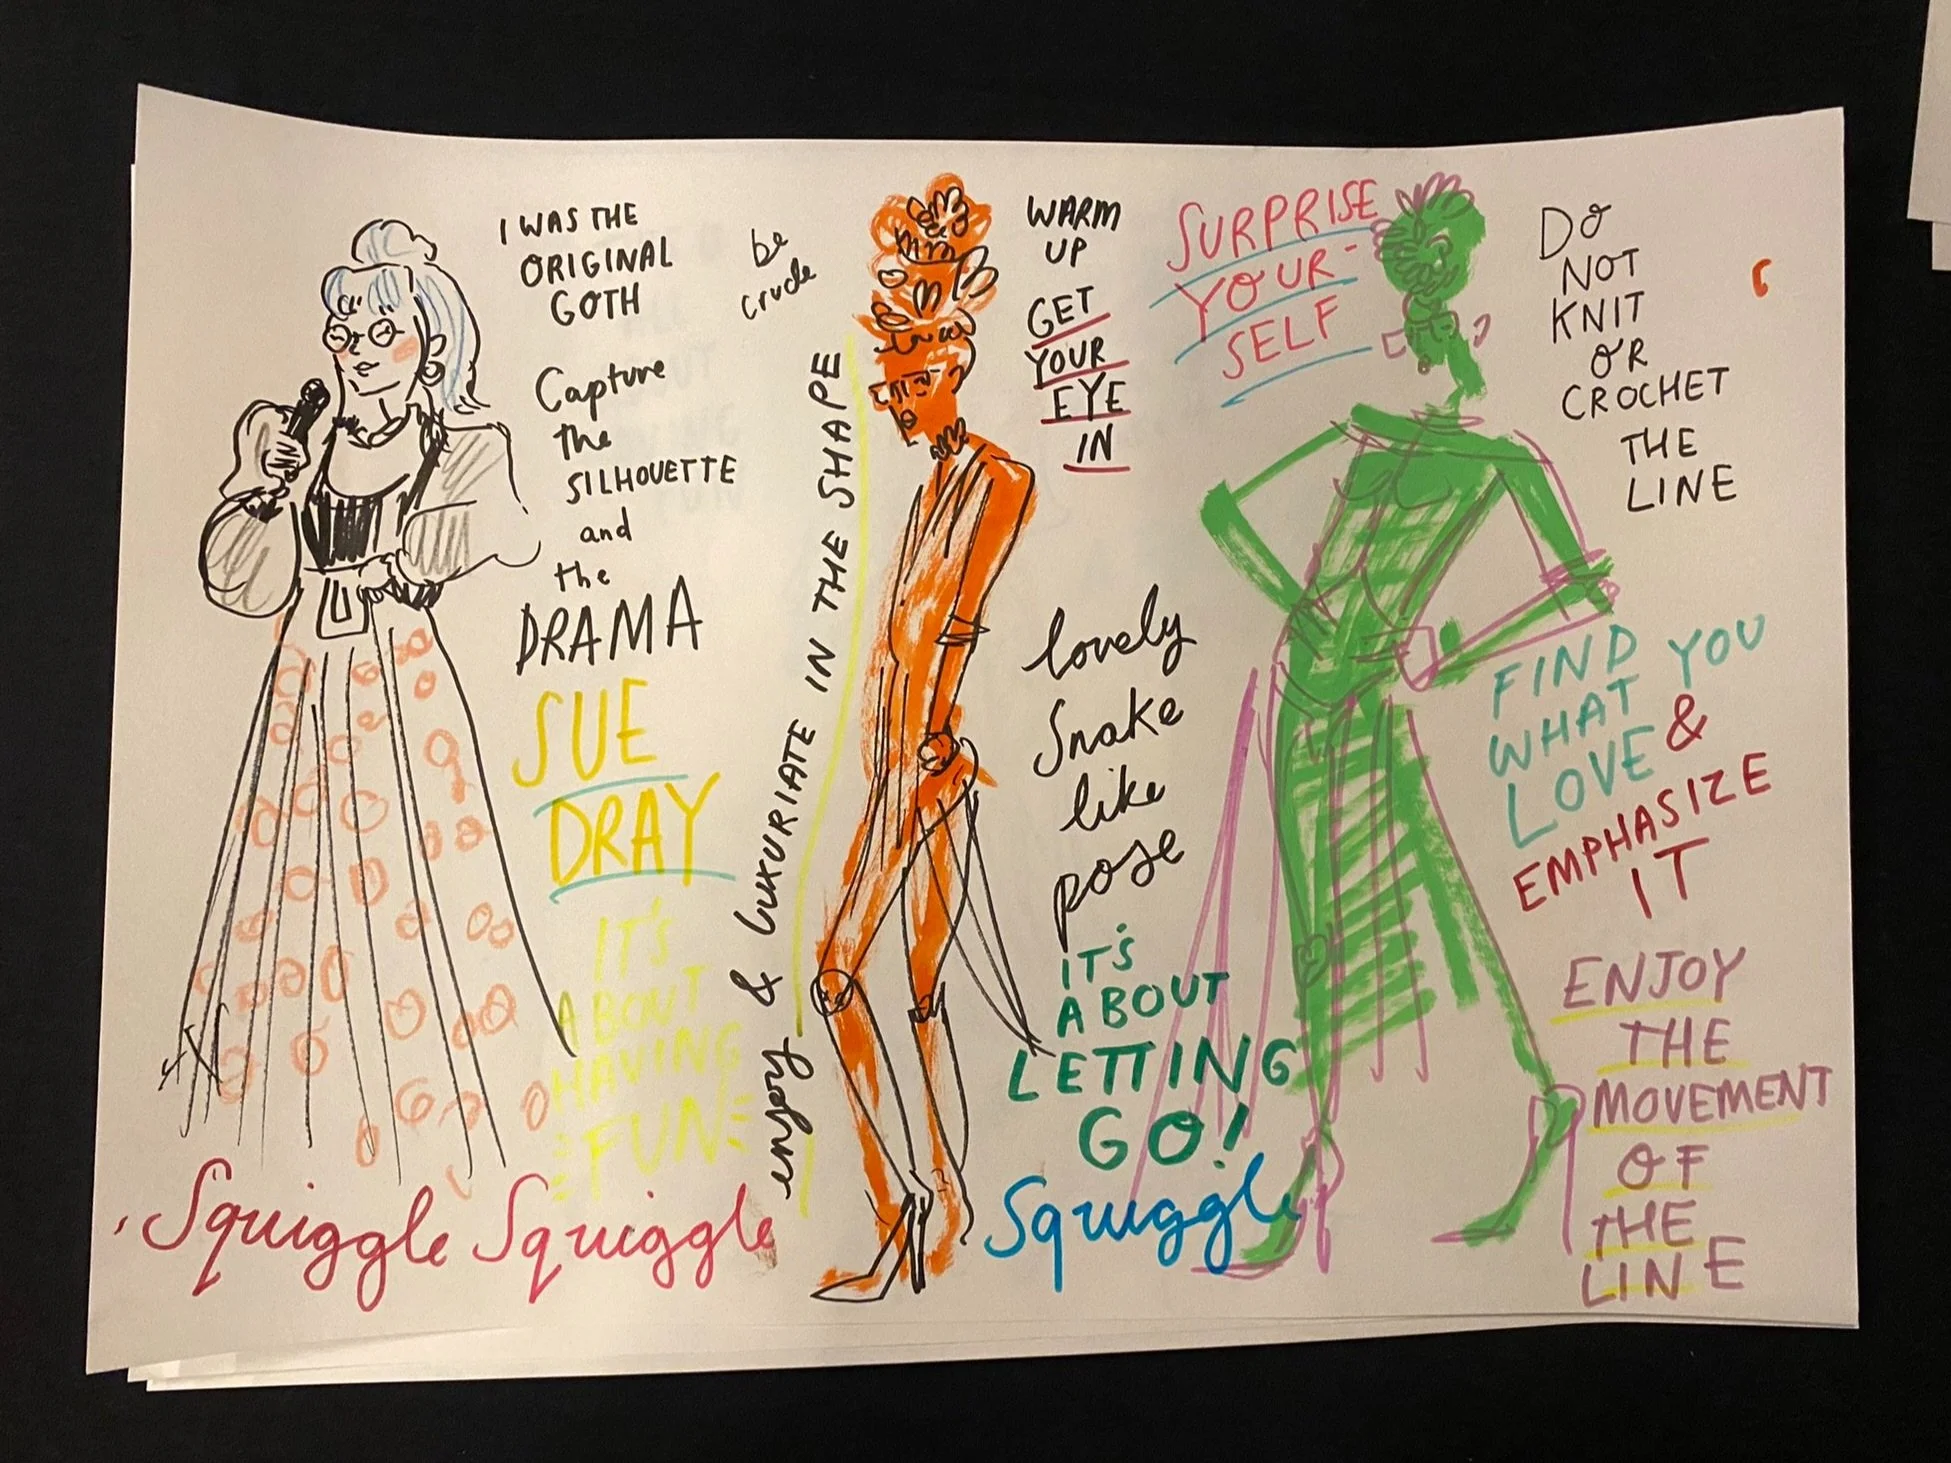 I WAS THE
ORIGINAL
GOTH
Capture
the
SILHOUETTE
and
the
DRAMA
SUE
DRAY
IT'S
ABOUT
HAVING
FUN
be
crude
enjoy & LUXURIATE IN THE SHAPE
WARM
UP
GET
YOUR
EYE
IN
lovely
Snake
like
pose
IT'S
ABOUT
LETTING
GO!
SURPRISE
YOUR-
SELF
DO
NOT
KNIT
OR
CROCHET
THE
LINE
FIND YOU
WHAT
LOVE &
EMPHASIZE
IT
ENJOY
THE
MOVEMENT
OF
THE
LINE
Squiggle Squiggle
Squiggle